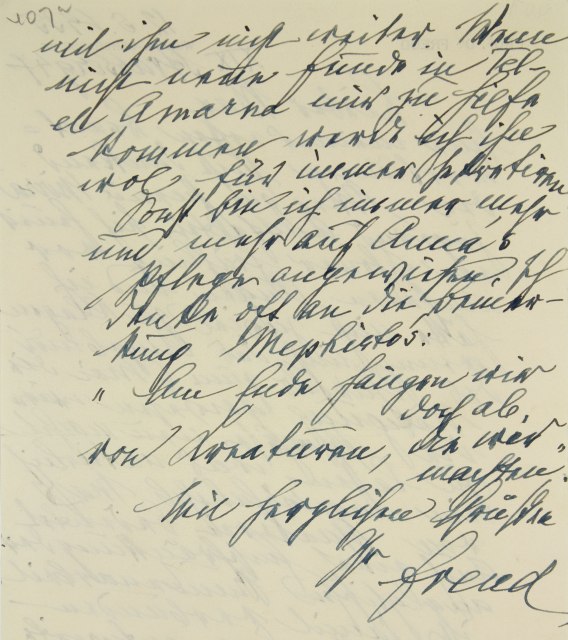 mit ihm nicht weiter. Wenn
nicht neue Funde in Tel-
el Amarna mir zu Hilfe
kommen werde ich ihn
wol für immer sekretiren
Sonst bin ich immer mehr
und mehr auf Anna's
Pflege angewiesen. Ich
denke oft an die Bemer-
kung Mephistos:
„Am Ende hängen wir
doch ab
von Kreaturen, die wir
machten.“
Mit herzlichen Grüßen
Ihr Freud